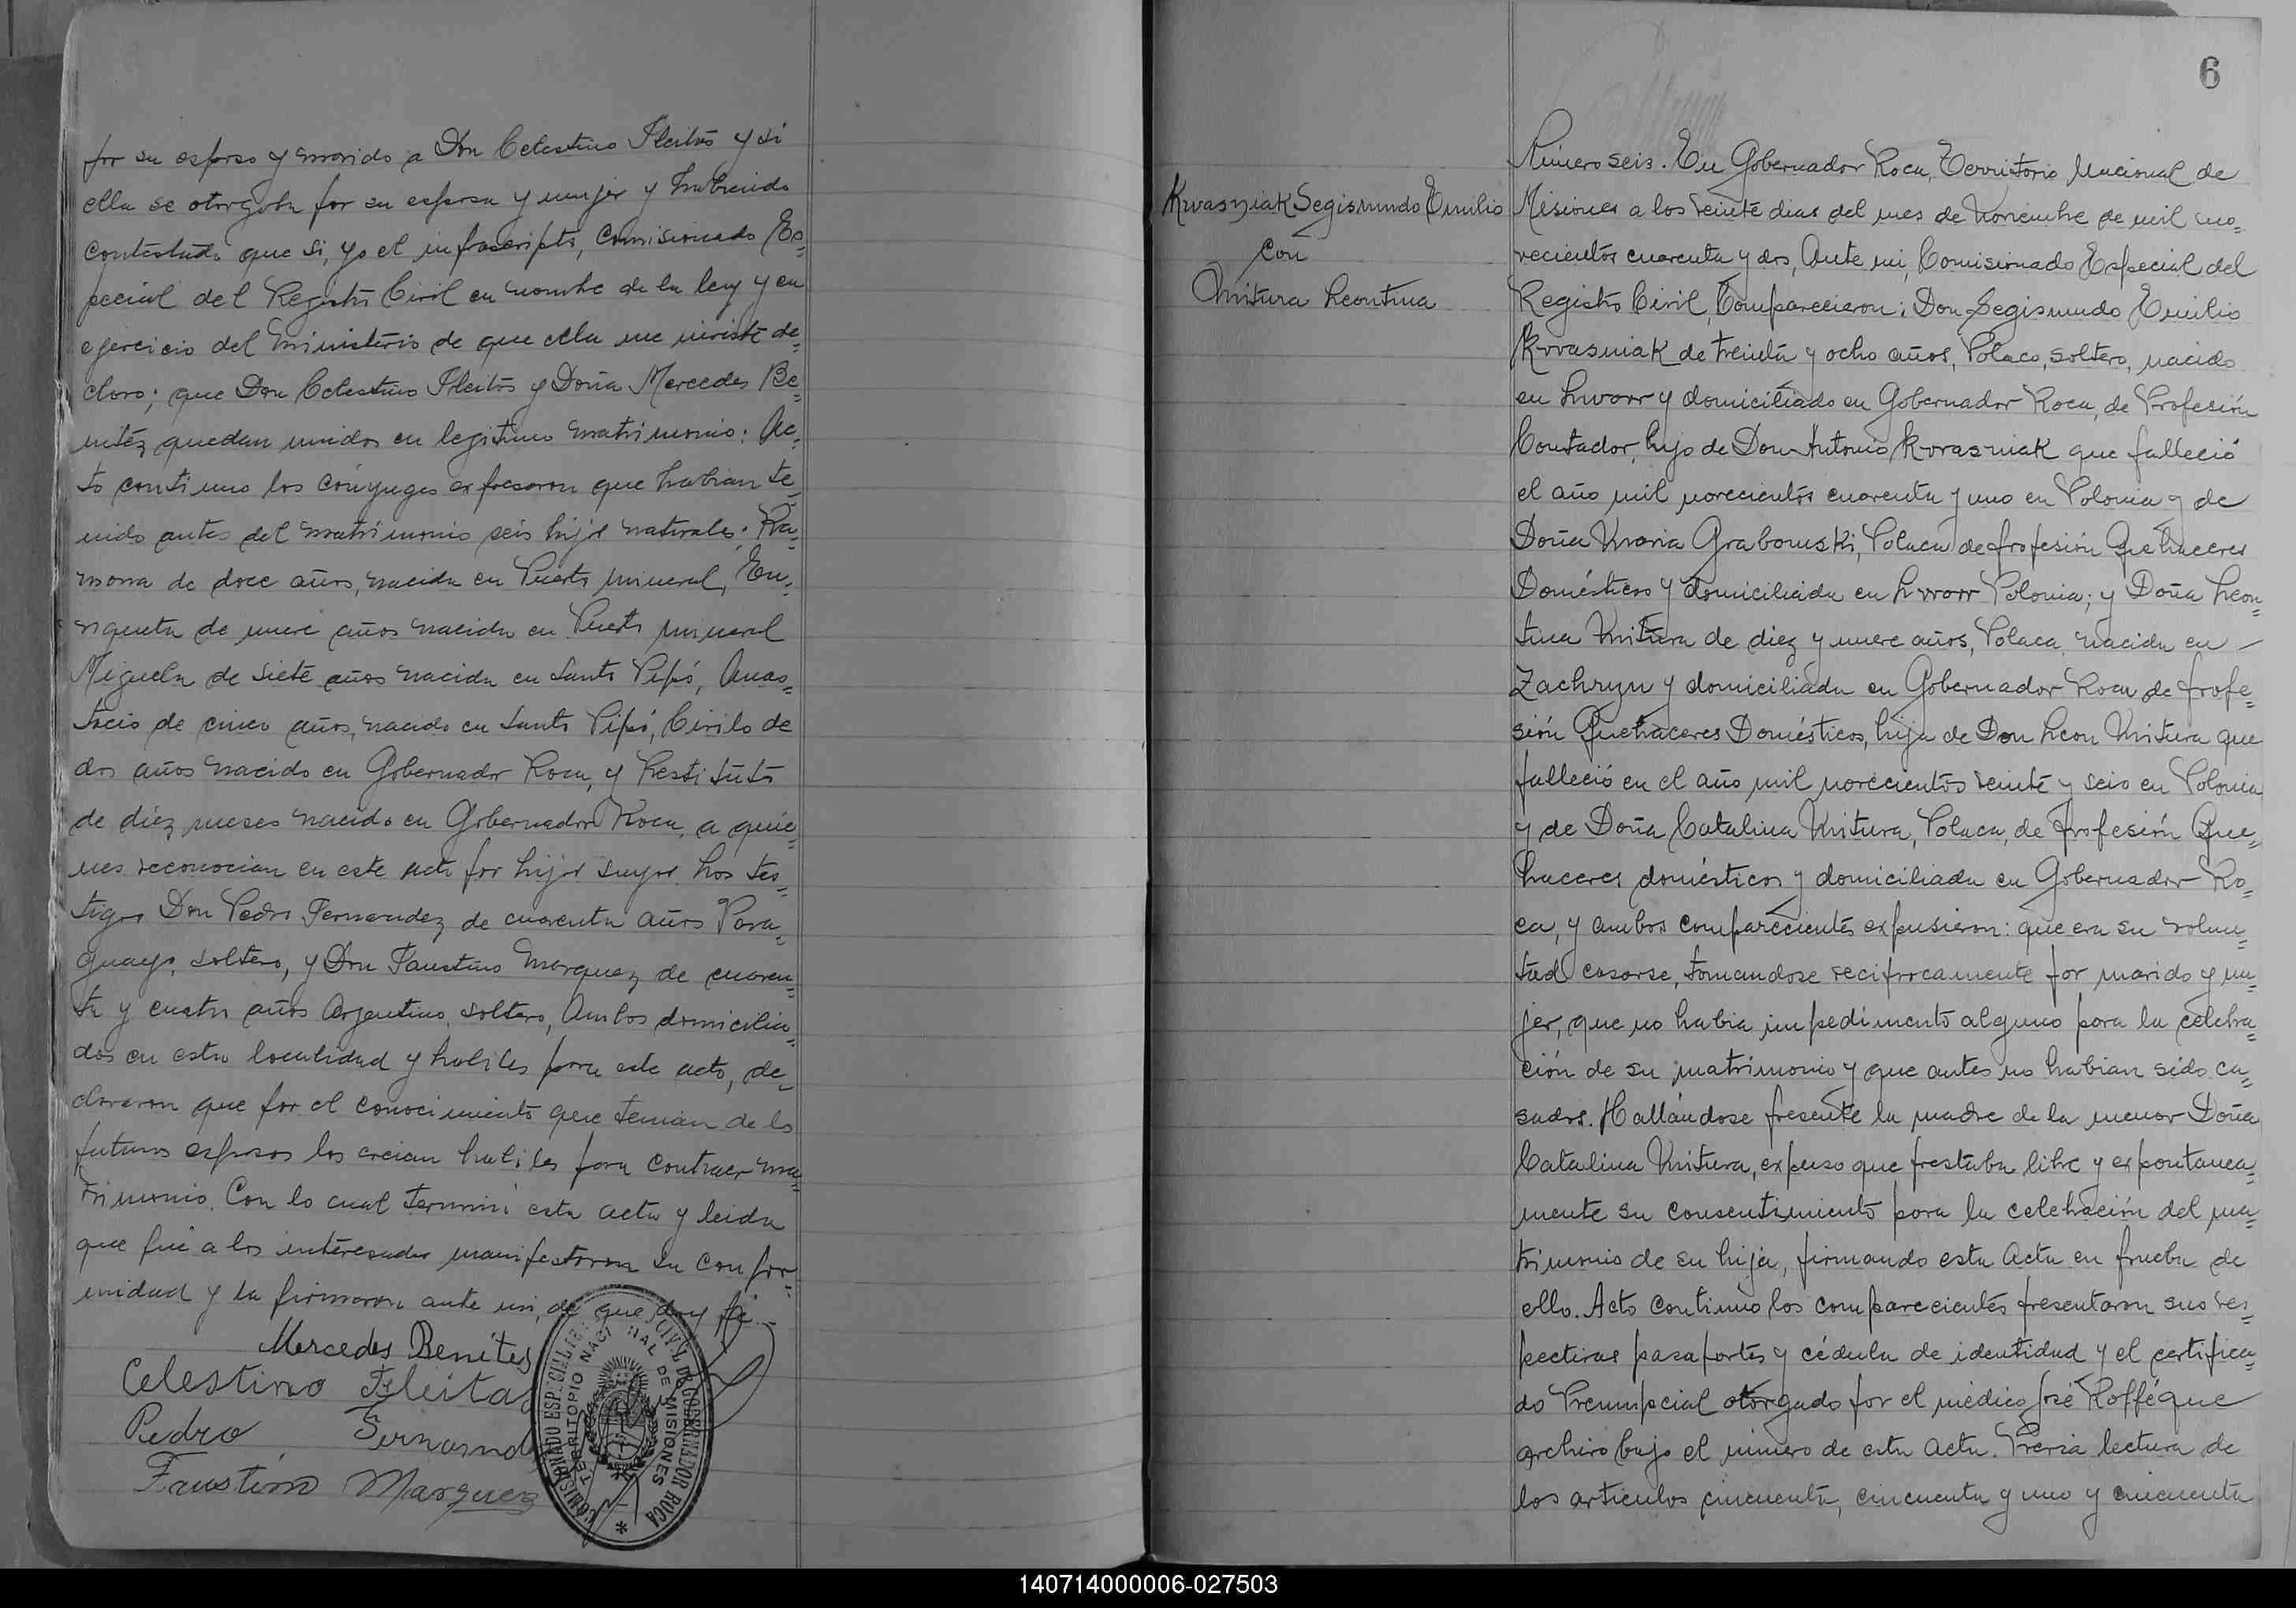 por su esposo y marido a Don Celestino Fleitas y si
ella se otorgaba por su esposa y mujer y habiendo
contestado que si, yo el infrascripto, Comisionado Es=
pecial del Registro Civil en nombre de la ley y en
ejercicio del ministerio de que ella me inviste de=
claro; que Don Celestino Fleitas y Doña Mercedes Be=
nitéz quedan unidos en legitimo matrimonio: Ac=
to continuo los cónyuges expresaron que habian te=
nido antes del matrimonio seis hijos naturales: Ra=
mona de doce años, nacida en Puerto Mineral, En=
riqueta de nueve años nacida en Puerto Mineral
Miguela de siete años nacida en Santo Pipó, Anas=
tacio de cinco años, nacido en Santo Pipó, Cirilo de
dos años nacido en Gobernador Roca, y Restituto
de diez meses nacido en Gobernador Roca, a quie=
nes reconocian en este acto por hijos suyos. Los tes=
tigos Don Pedro Fernandez de cuarenta años Para=
guayo, soltero, y Don Faustino Marquez de cuaren=
ta y cuatro años Argentino, soltero, Ambos domicilia=
dos en esta localidad y habiles para este acto, de=
clararon que por el conocimiento que tenian de los
futuros esposos los creian habiles para contraer ma=
trimonio. Con lo cual terminó esta acta y leida
que fué a los interesados manifestaron su confor=
midad y la firmaron ante mi, de que doy fé.
Mercedes Benites
Celestino Fleitas
Pedro Fernand
Faustino Marquez
COMISIONADO ESPECIAL REG. CIVIL DE GOBERNADOR ROCA
TERRITORIO NACIONAL DE MISIONES
6
Kwasniak Segismundo Emilio
con
Mitura Leontina
Número seis. En Gobernador Roca, Territorio Nacional de
Misiones a los veinte dias del mes de Noviembre de mil no=
vecientos cuarenta y dos, Ante mi, Comisionado Especial del
Registro Civil, Comparecieron: Don Segismundo Emilio
Kwasniak de treinta y ocho años, Polaco, soltero, nacido
en Lwow y domiciliado en Gobernador Roca, de Profesión
Contador, hijo de Don Antonio Kwasniak que falleció
el año mil novecientos cuarenta y uno en Polonia y de
Doña Maria Grabowski, Polaca de profesión Quehaceres
Domésticos y domiciliada en Lwow Polonia; y Doña Leon=
tina Mitura de diez y nueve años, Polaca, nacida en
Zachryn y domiciliada en Gobernador Roca de profe=
sión Quehaceres Domésticos, hija de Don Leon Mitura que
falleció en el año mil novecientos veinte y seis en Polonia
y de Doña Catalina Mitura, Polaca, de profesión Que=
haceres domésticos y domiciliada en Gobernador Ro=
ca, y ambos comparecientes expusieron: que era su volun=
tad casarse, tomandose reciprocamente por marido y mu=
jer, que no habia impedimento alguno para la celebra=
ción de su matrimonio y que antes no habian sido ca=
sados. Hallándose presente la madre de la menor Doña
Catalina Mitura, expuso que prestaba libre y expontanea=
mente su consentimiento para la celebración del ma=
trimonio de su hija, firmando esta Acta en prueba de
ello. Acto continuo los comparecientes presentaron sus res=
pectivas pasaportes y cédula de identidad y el certifica=
do Prenupcial otorgado por el médico José Roffé que
archivo bajo el número de esta acta. Previa lectura de
los articulos cincuenta, cincuenta y uno y cincuenta
140714000006-027503